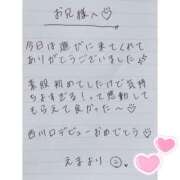 お兄様へ♡
今日は遊びに来てくれて
ありがとうございました
素股初めてしたけど気持
ちよすぎる!って感動して
もらえて良かった〜
西川口デビューおめでとう
えまより